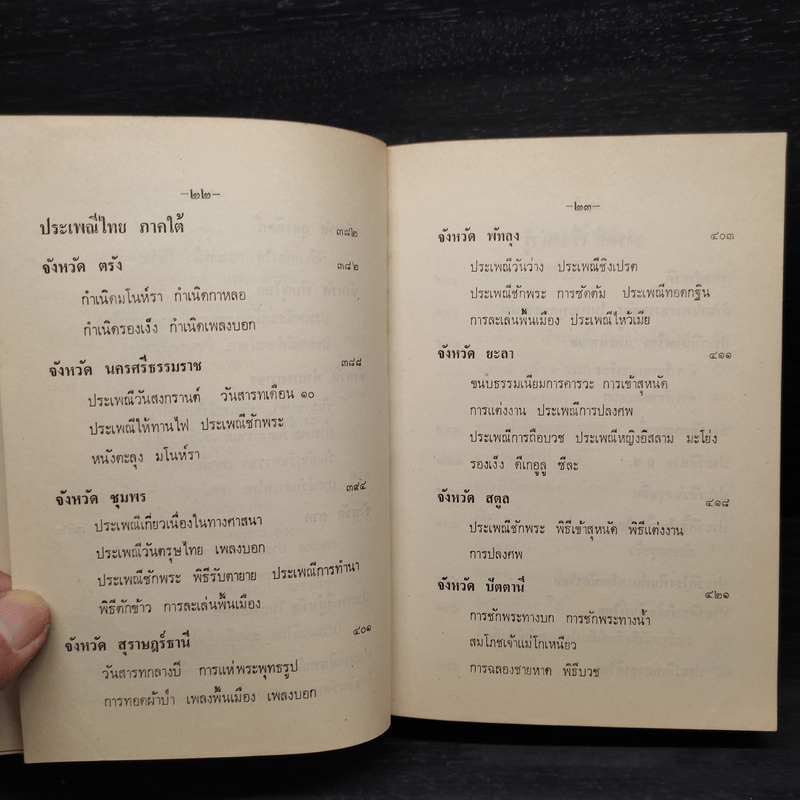 -๒๒-
ประเพณีไทย ภาคใต้ ๓๘๒
จังหวัด ตรัง ๓๘๒
กำเนิดมโนห์รา กำเนิดกาหลอ
กำเนิดรองเง็ง กำเนิดเพลงบอก
จังหวัด นครศรีธรรมราช ๓๘๘
ประเพณีวันสงกรานต์ วันสารทเดือน ๑๐
ประเพณีให้ทานไฟ ประเพณีชักพระ
หนังตะลุง มโนห์รา
จังหวัด ชุมพร ๓๙๔
ประเพณีเกี่ยวเนื่องในทางศาสนา
ประเพณีวันตรุษไทย เพลงบอก
ประเพณีชักพระ พิธีรับตายาย ประเพณีการทำนา
พิธีตักข้าว การละเล่นพื้นเมือง
จังหวัด สุราษฎร์ธานี ๔๐๑
วันสารทกลางปี การแห่พระพุทธรูป
การทอดผ้าป่า เพลงพื้นเมือง เพลงบอก
-๒๓-
จังหวัด พัทลุง ๔๐๓
ประเพณีวันว่าง ประเพณีชิงเปรต
ประเพณีชักพระ การซัดต้ม ประเพณีทอดกฐิน
การละเล่นพื้นเมือง ประเพณีไหว้เมีย
จังหวัด ยะลา ๔๑๑
ขนบธรรมเนียมการคารวะ การเข้าสุหนัต
การแต่งงาน ประเพณีการปลงศพ
ประเพณีการถือบวช ประเพณีหญิงอิสลาม มะโย่ง
รองเง็ง ดีเกอูลู ซีละ
จังหวัด สตูล ๔๑๘
ประเพณีชักพระ พิธีเข้าสุหนัต พิธีแต่งงาน
การปลงศพ
จังหวัด ปัตตานี ๔๒๑
การชักพระทางบก การชักพระทางน้ำ
สมโภชเจ้าแม่โกเหนียว
การฉลองชายหาด พิธีบวช